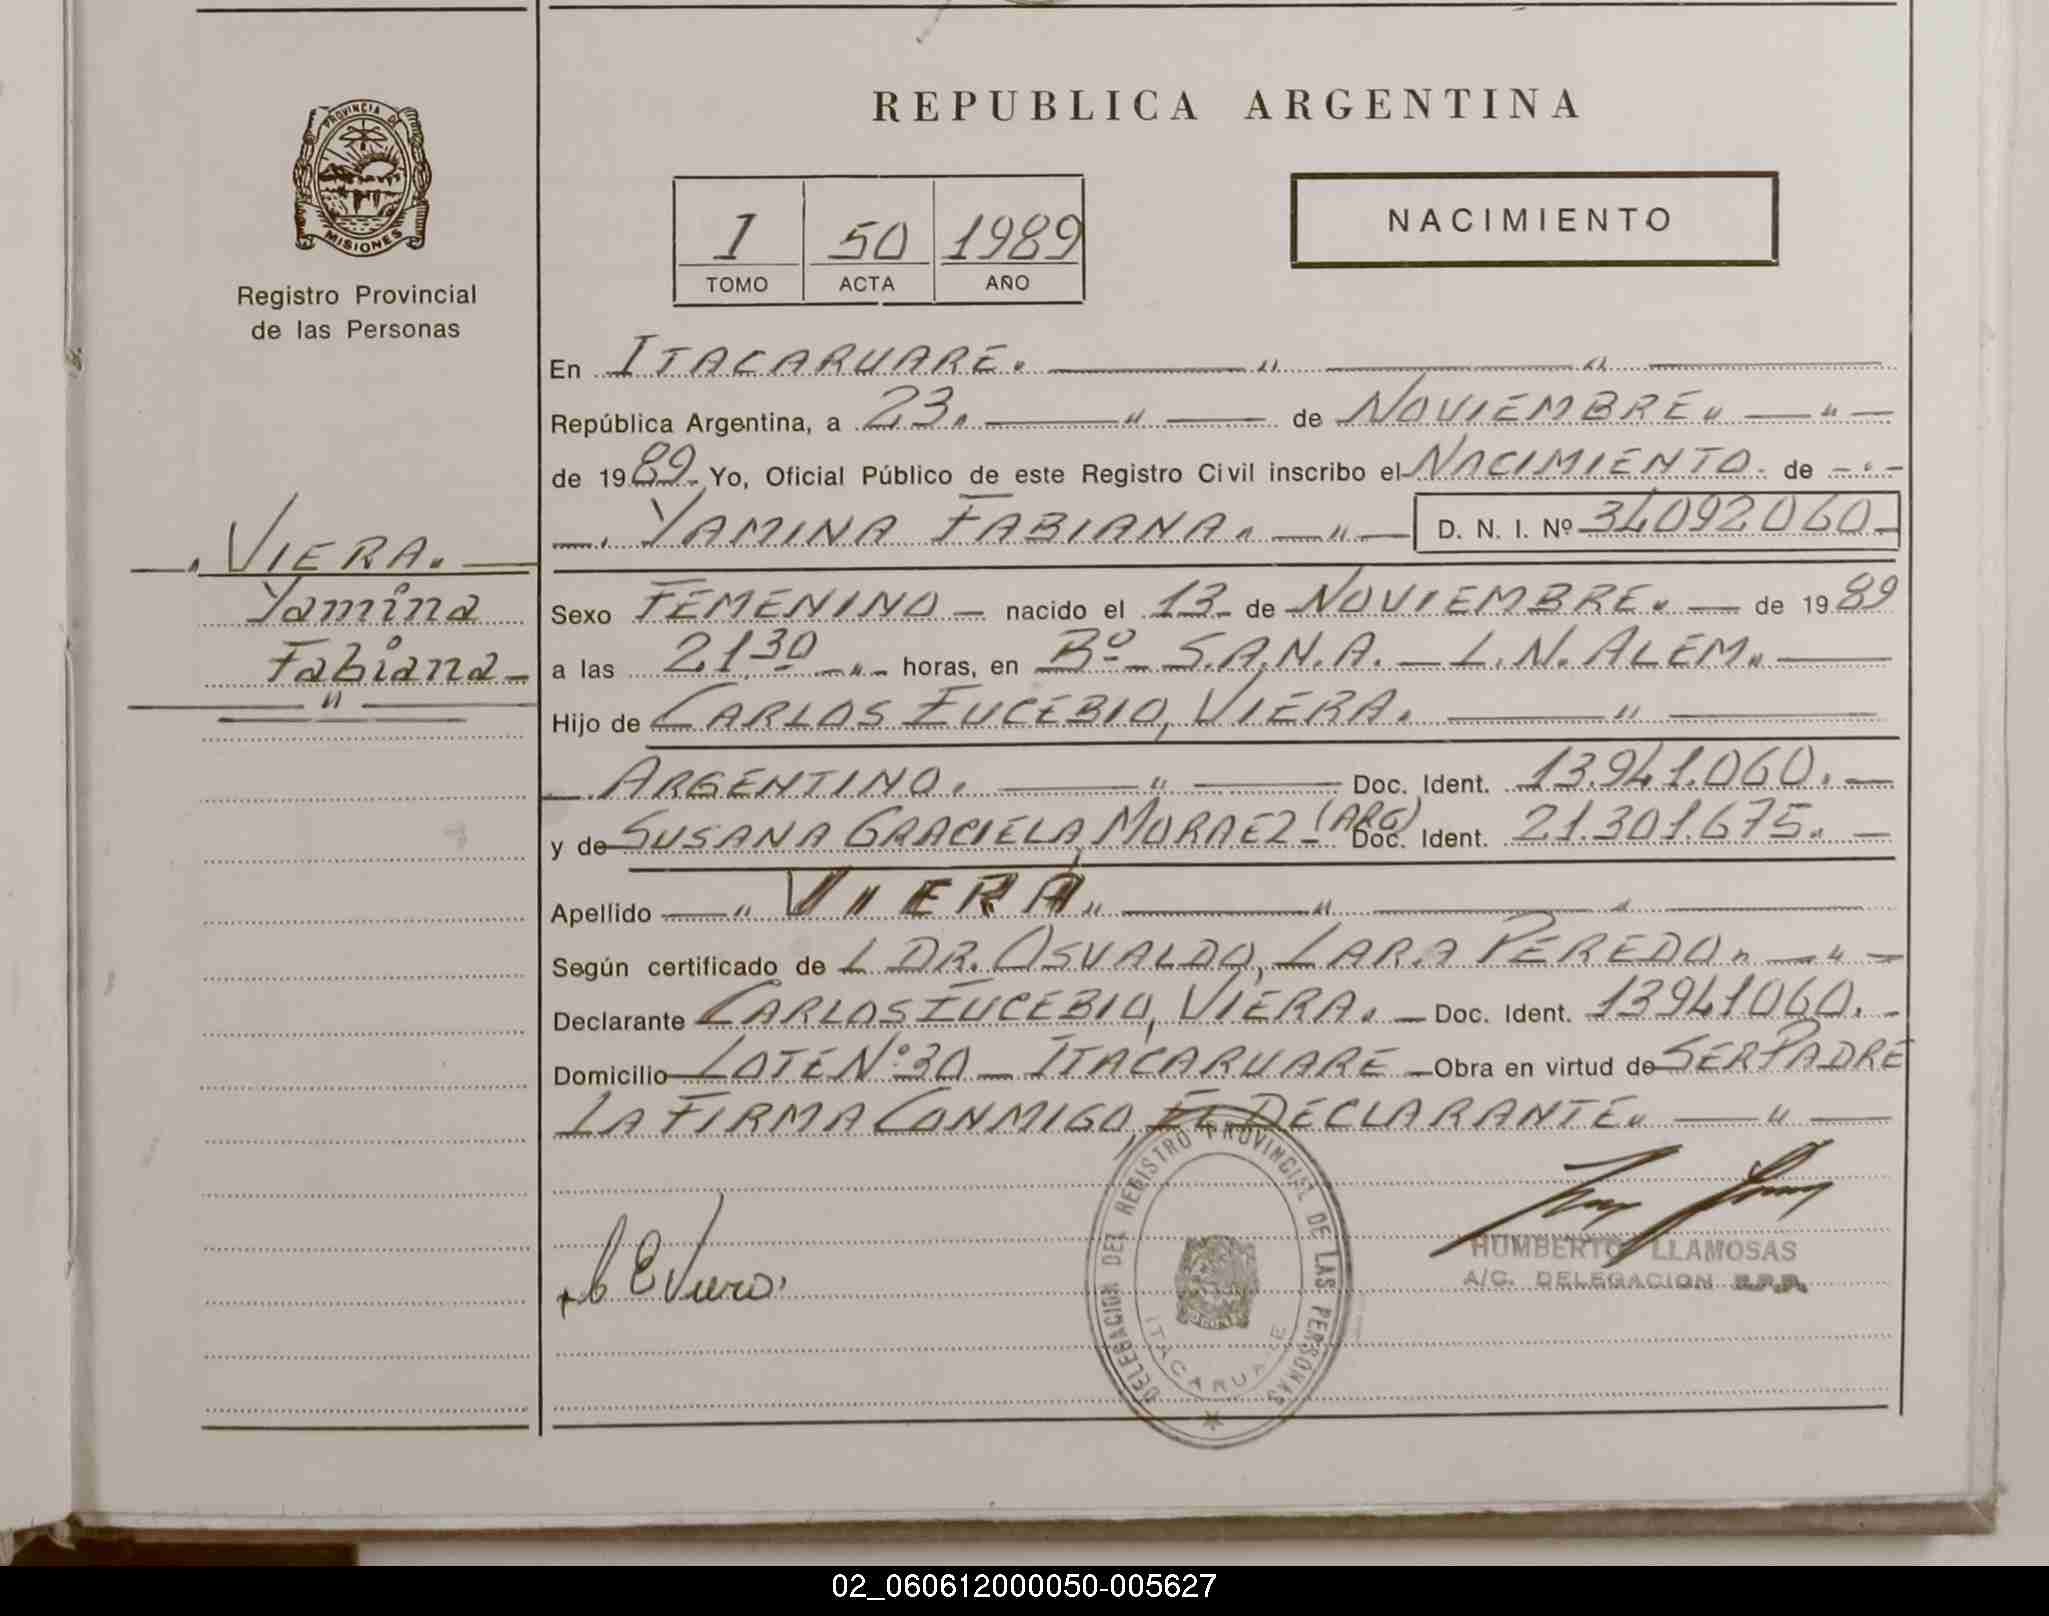 PROVINCIA DE
MISIONES
Registro Provincial
de las Personas
VIERA.
Yamina
Fabiana
REPUBLICA ARGENTINA
1 50 1989
TOMO ACTA AÑO
NACIMIENTO
En ITACARUARE.
República Argentina, a 23. de NOVIEMBRE
de 1989 Yo, Oficial Público de este Registro Civil inscribo el NACIMIENTO. de
YAMINA FABIANA. D. N. I. Nº 34092060
Sexo FEMENINO nacido el 13 de NOVIEMBRE. de 1989
a las 21,30 horas, en Bº S.A.N.A. - L.N. ALEM.
Hijo de CARLOS EUCEBIO, VIERA.
ARGENTINO. Doc. Ident. 13.941.060.
y de SUSANA GRACIELA, MORAEZ (ARG) Doc. Ident. 21.301.675.
Apellido VIERA
Según certificado de L DR. OSVALDO, LARA PEREDO
Declarante CARLOS EUCEBIO, VIERA. Doc. Ident. 13941060.
Domicilio LOTE Nº 30 - ITACARUARE Obra en virtud de SER PADRE
LA FIRMA CONMIGO, EL DECLARANTE
DELEGACION DEL REGISTRO PROVINCIAL DE LAS PERSONAS
ITACARUARE
C E Viera
HUMBERTO LLAMOSAS
A/C. DELEGACION R.P.P.
02_060612000050-005627